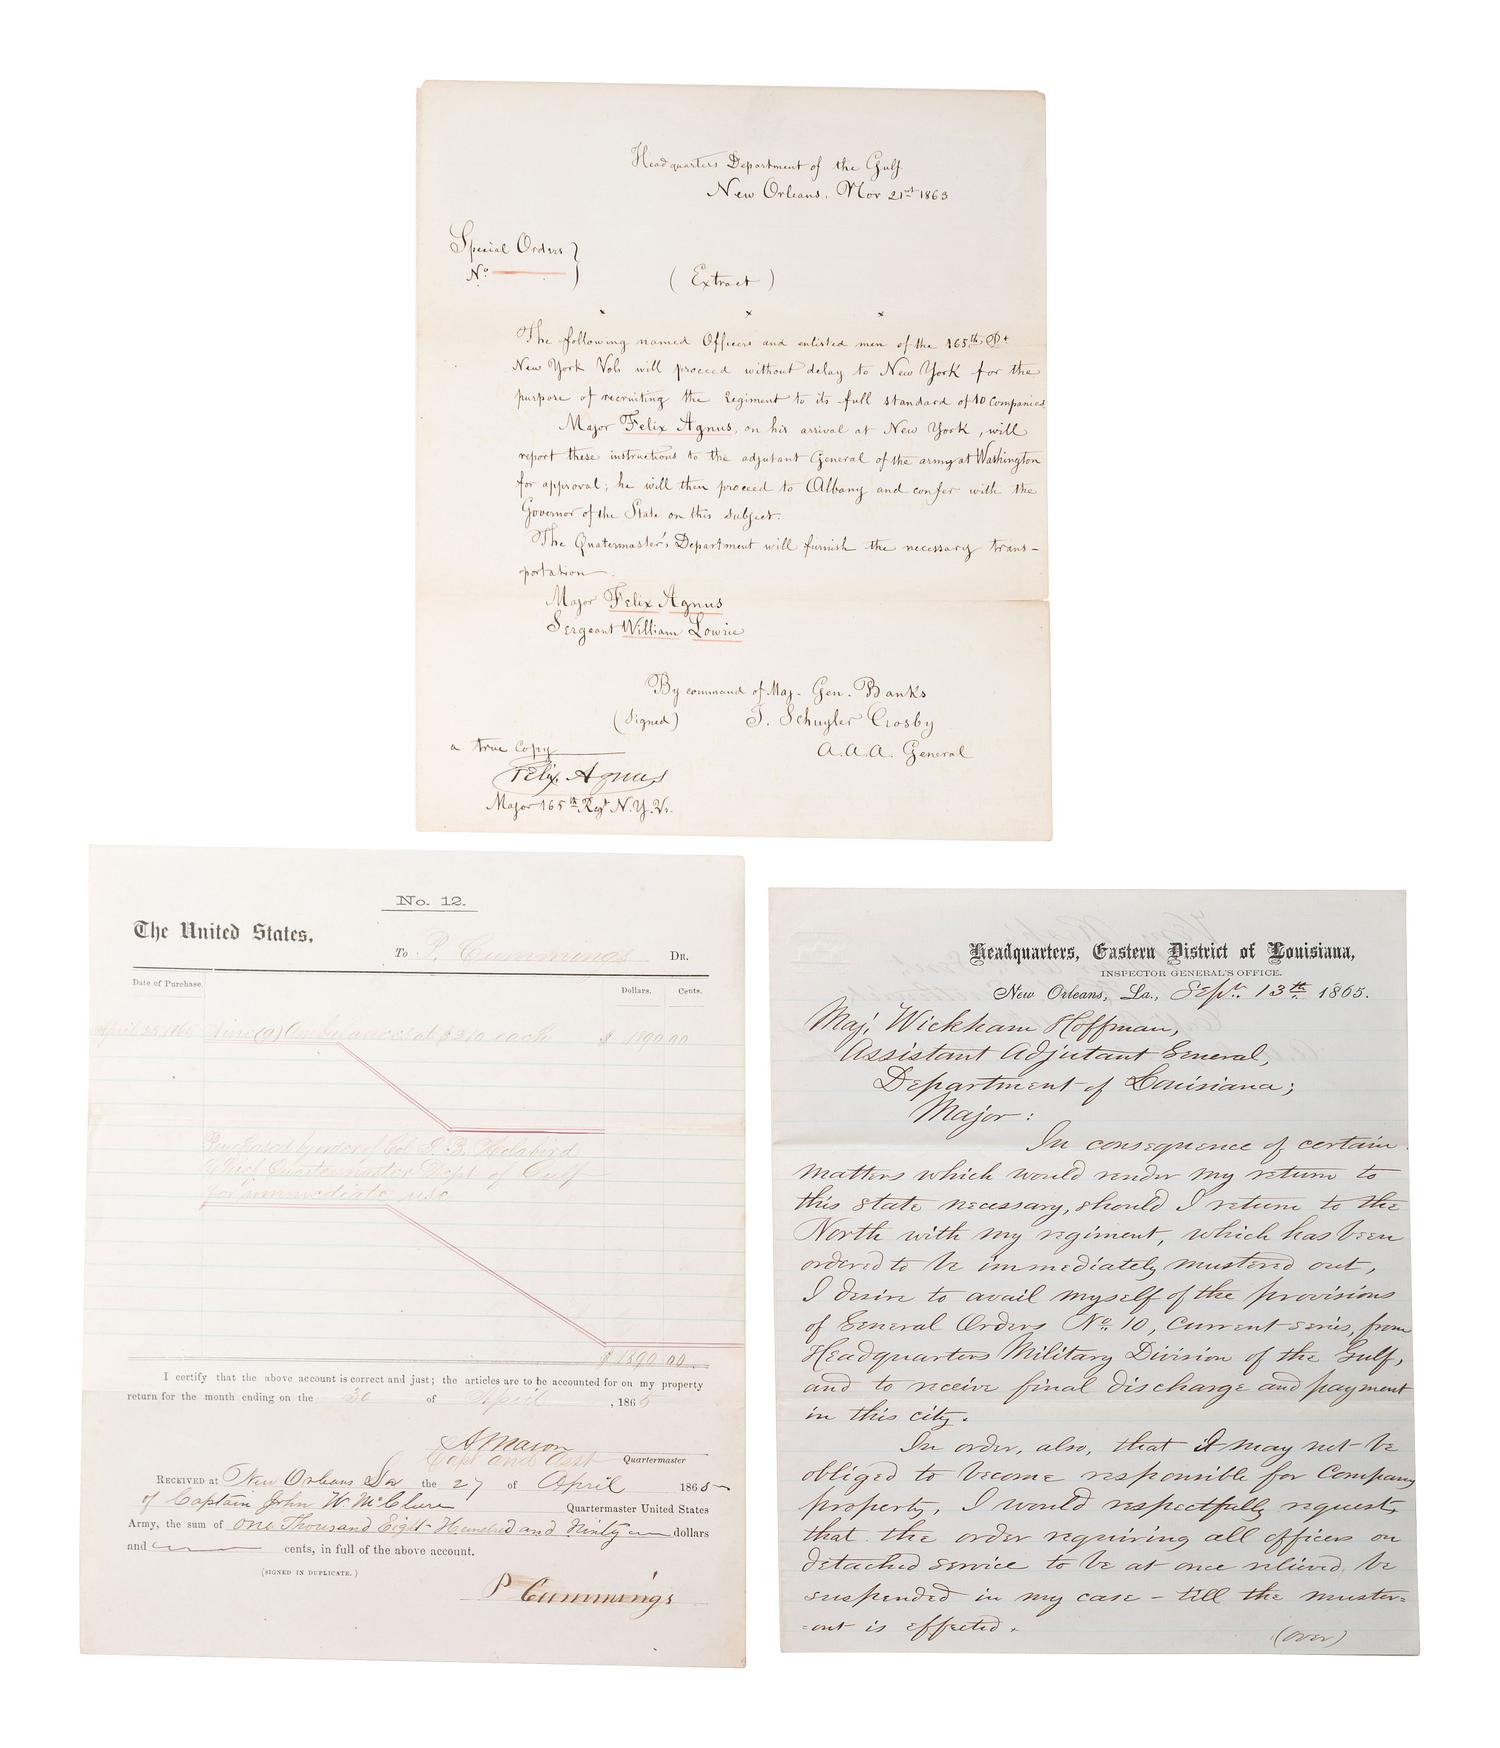 Headquarters Department of the Gulf
New Orleans, Nov 21st 1863
Special Orders }
No.
( Extract )
x x x
The following named Officers and enlisted men of the 165th Rt
New York Vols will proceed without delay to New York for the
purpose of recruiting the Regiment to its full standard of 10 Companies
Major Felix Agnus, on his arrival at New York, will
report these instructions to the adjutant General of the army at Washington
for approval; he will then proceed to Albany and confer with the
Governor of the State on this subject.
The Quatermaster's Department will furnish the necessary trans-
portation.
Major Felix Agnus
Sergeant William Lowrie
By command of Maj. Gen. Banks
(Signed) J. Schuyler Crosby
A.A.A. General
a true Copy
Felix Agnus
Major 165th Regt N.Y.V.
No. 12.
The United States,
To P. Cummings Dr.
Date of Purchase. Dollars. Cents.
April 25, 1865 Nine (9) Ambulances at $210 each $ 1890 00
Purchased by order of Col S. B. Holabird
Chief Quartermaster Dept of Gulf
for immediate use
$ 1890 00
I certify that the above account is correct and just; the articles are to be accounted for on my property
return for the month ending on the 30 of April, 1865
A Mason
Capt and Asst Quartermaster
Received at New Orleans La the 27 of April 1865
of Captain John W. McClure Quartermaster United States
Army, the sum of One Thousand Eight Hundred and Ninety dollars
and cents, in full of the above account.
(SIGNED IN DUPLICATE.)
P Cummings
Headquarters, Eastern District of Louisiana,
INSPECTOR GENERAL'S OFFICE.
New Orleans, La., Sept. 13th 1865.
Maj. Wickham Hoffman,
Assistant Adjutant General,
Department of Louisiana;
Major:
In consequence of certain
matters which would render my return to
this state necessary, should I return to the
North with my regiment, which has been
ordered to be immediately mustered out,
I desire to avail myself of the provisions
of General Orders No. 10, current series, from
Headquarters Military Division of the Gulf,
and to receive final discharge and payment
in this city.
In order, also, that it may not be
obliged to become responsible for Company
property, I would respectfully request,
that the order requiring all officers on
detached service to be at once relieved, be
suspended in my case – till the muster=
=out is effected.
(over)